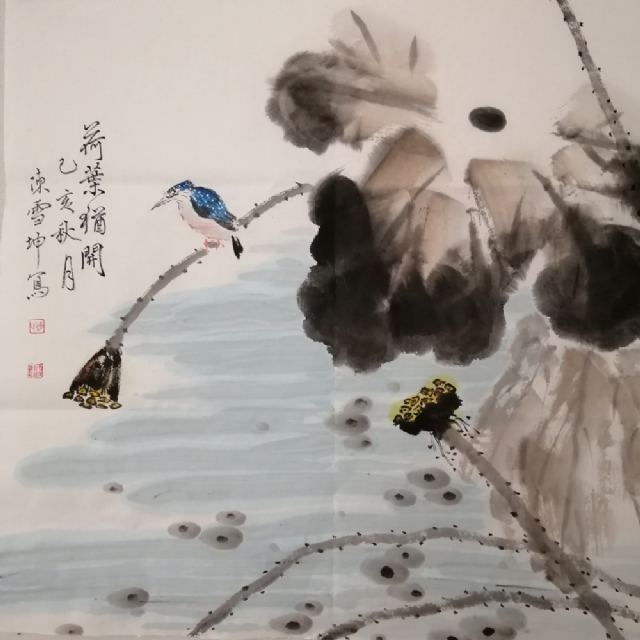 荷葉猶開
乙亥秋月
陳雪坤寫